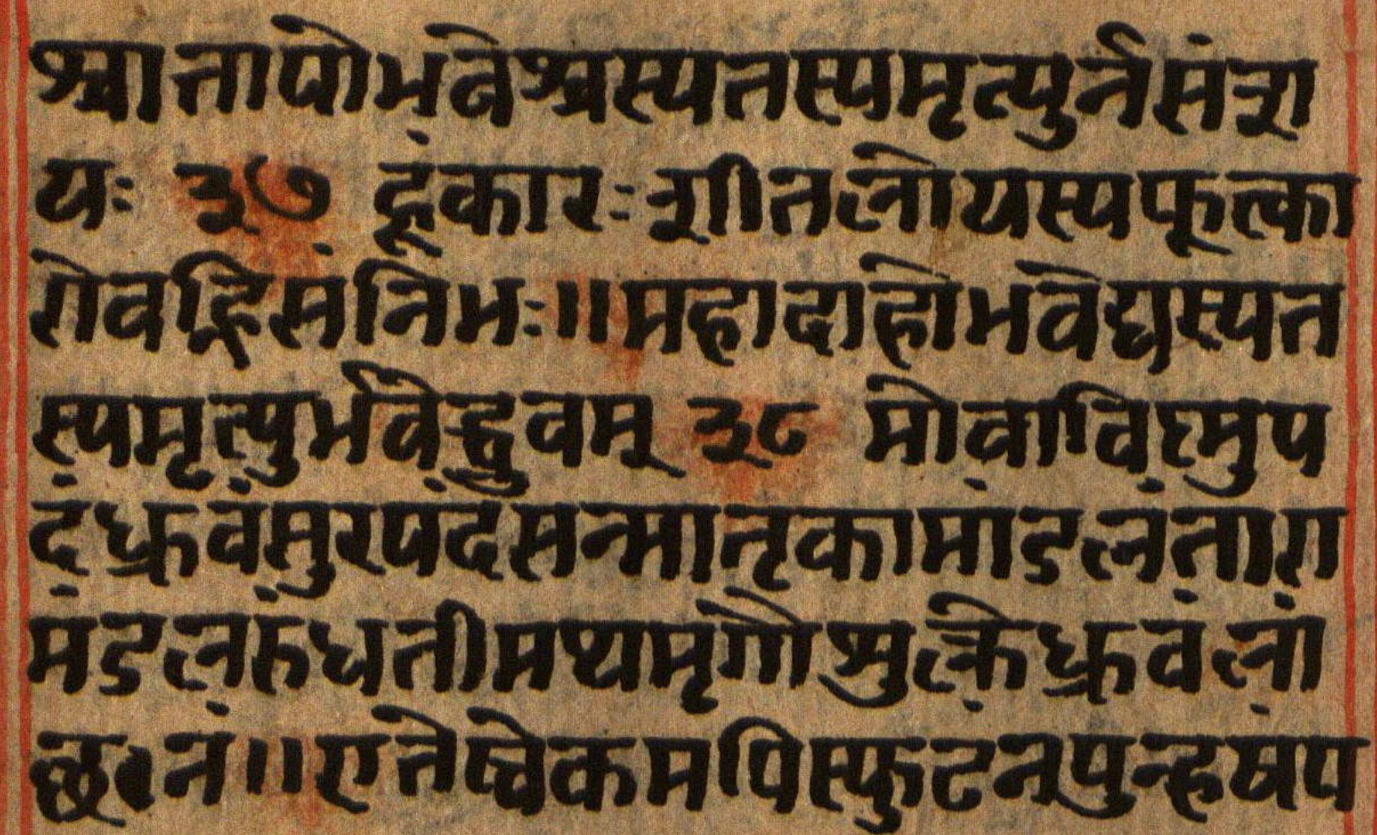 श्चात्तापोभवेश्चस्यतस्यमृत्युर्नसंश
यः ३७ हूंकारः शीतलोयस्यफूत्का
रोवह्निसंनिभः॥महादाहोभवेद्यस्यत
स्यमृत्युर्भवेद्ध्रुवम् ३८ सोवाविष्मुप
दंध्रुवंसुरपदंसन्मातृकामाडलंतारा
मडलरुधतीमथमृगोशुक्रेध्रुवलां
छनं॥एतेष्वेकमपिस्फुटनपु